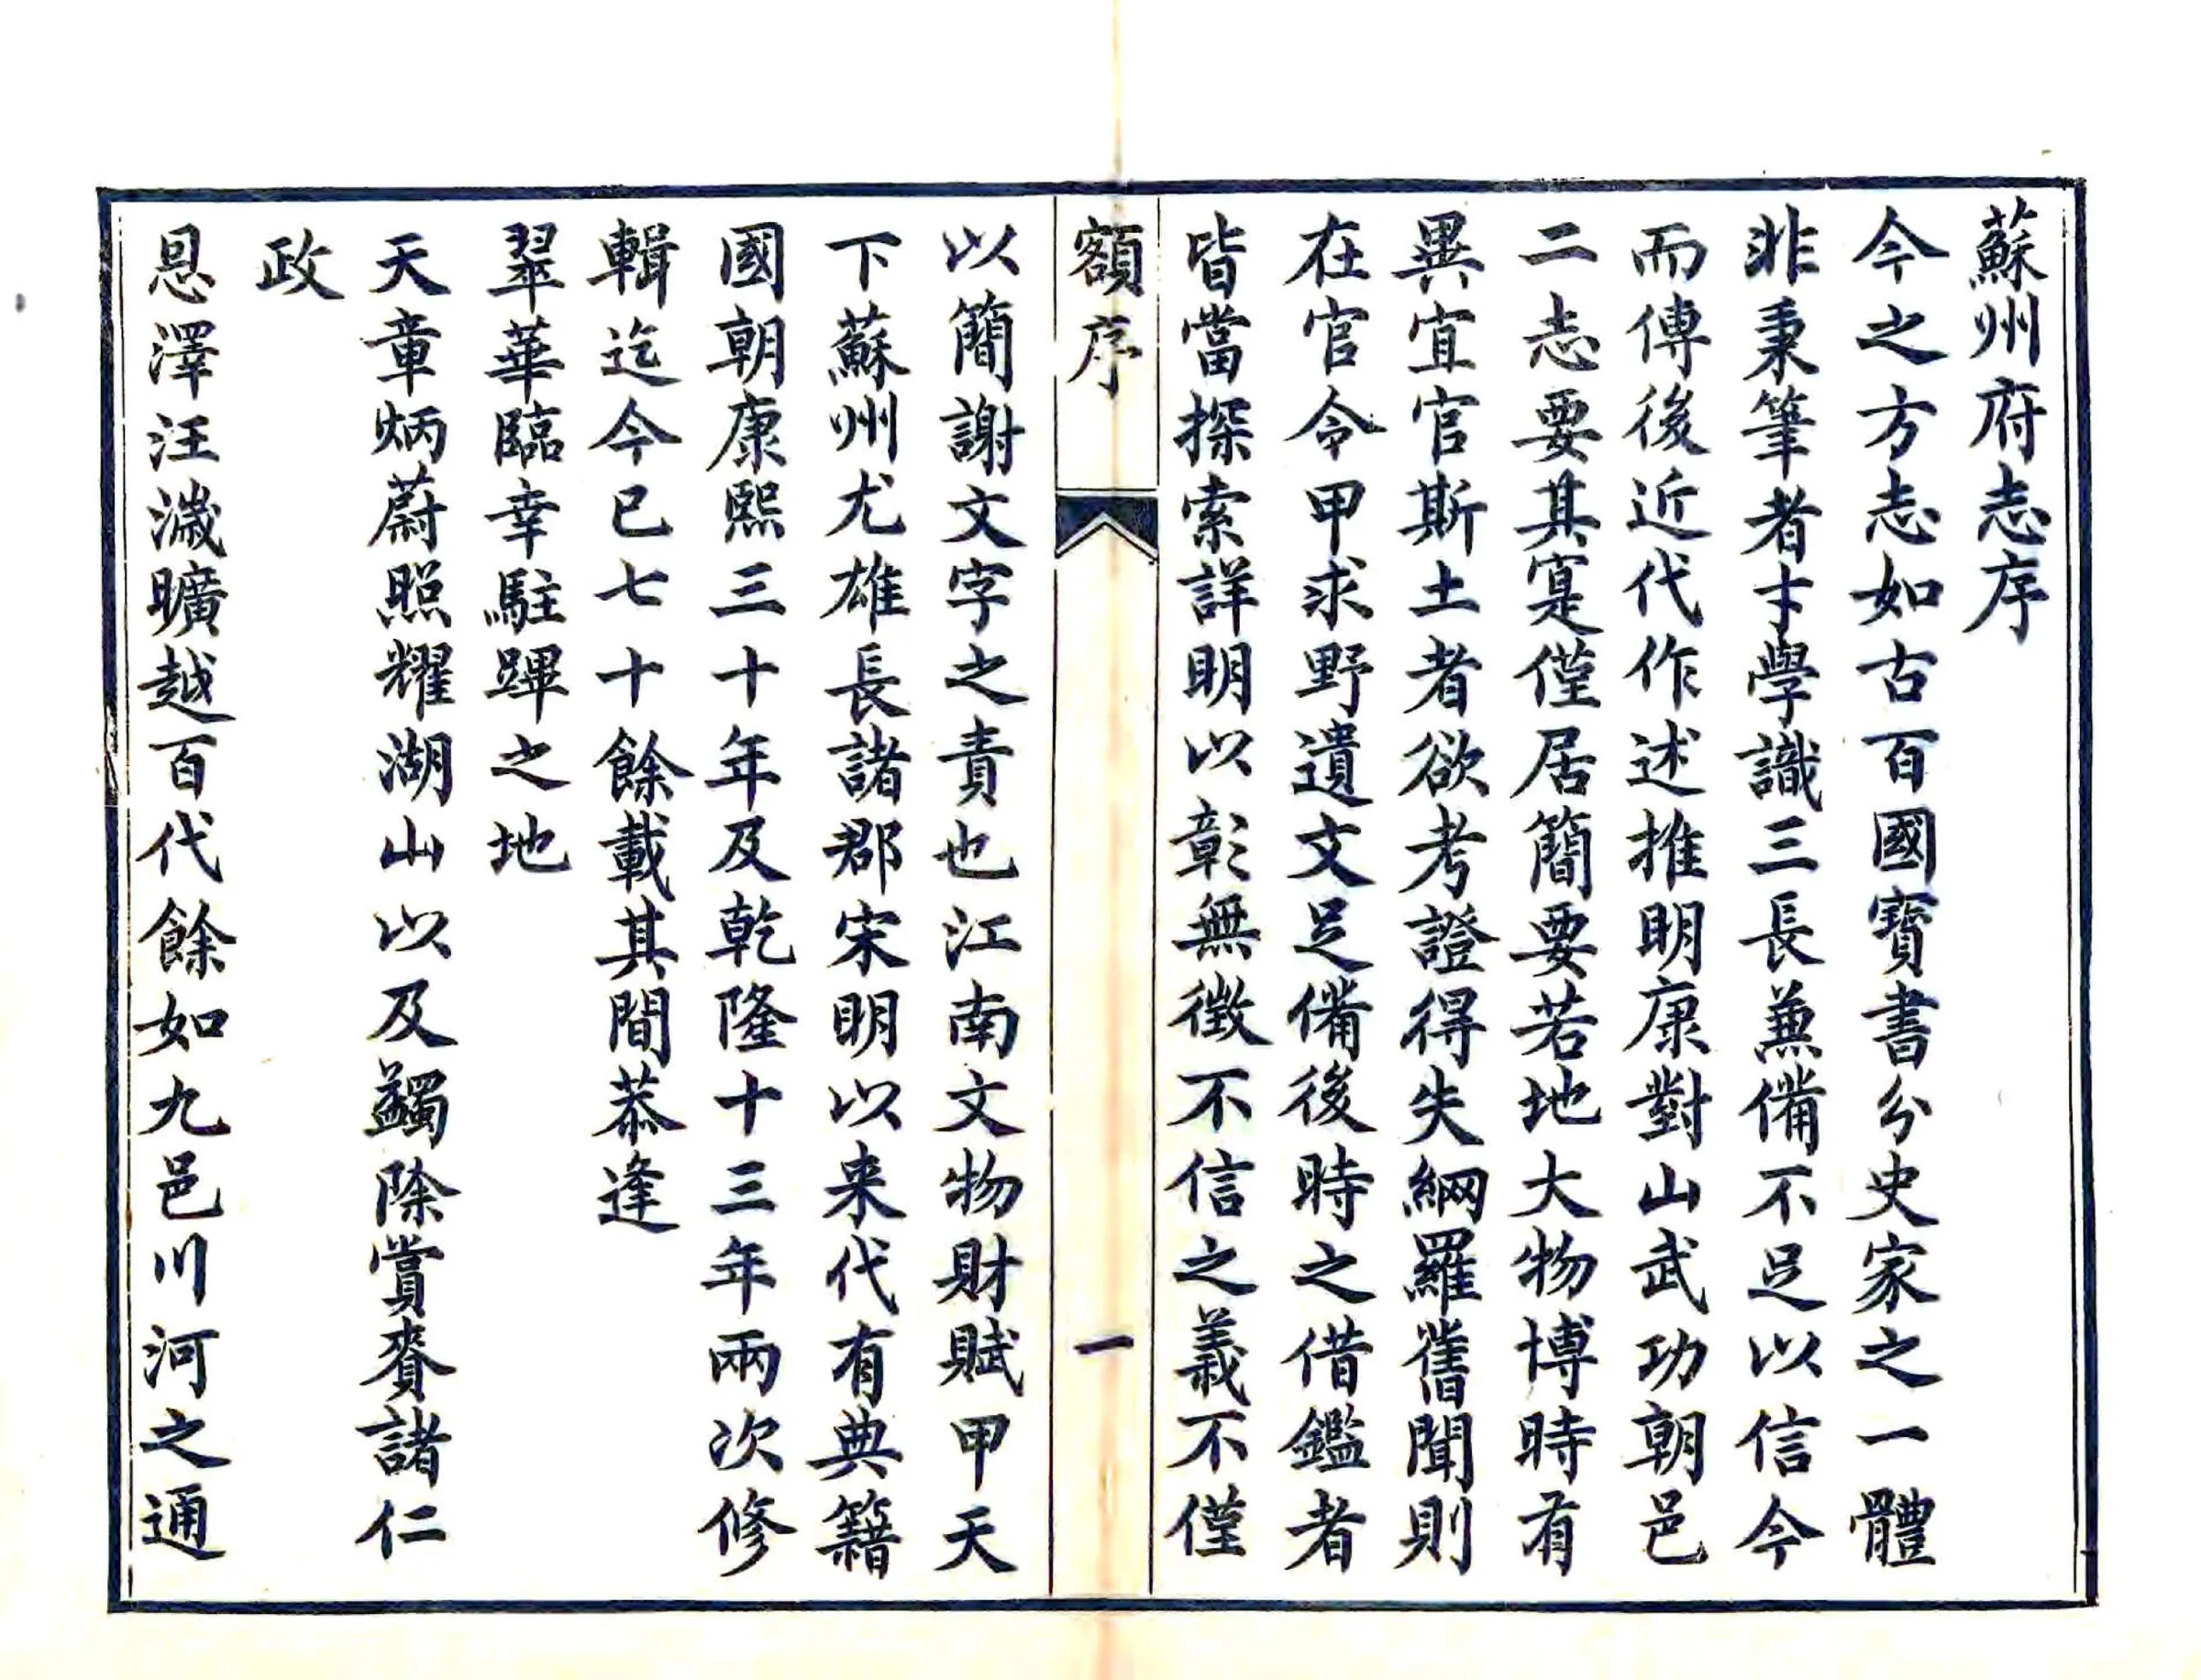 蘇州府志序
今之方志如古百國寶書分史家之一體
非秉筆者才學識三長兼備不足以信今
而傳後近代作述推明康對山武功朝邑
二志要其寔僅居簡要若地大物博時有
異宜官斯土者欲考證得失網羅舊聞則
在官令甲求野遺文足備後時之借鑑者
皆當探索詳明以彰無徵不信之義不僅
額序
一
以簡謝文字之責也江南文物財賦甲天
下蘇州尤雄長諸郡宋明以来代有典籍
國朝康熙三十年及乾隆十三年兩次修
輯迄今已七十餘載其間恭逢
翠華臨幸駐蹕之地
天章炳蔚照耀湖山以及蠲除賞賚諸仁
政
恩澤汪濊曠越百代餘如九邑川河之通